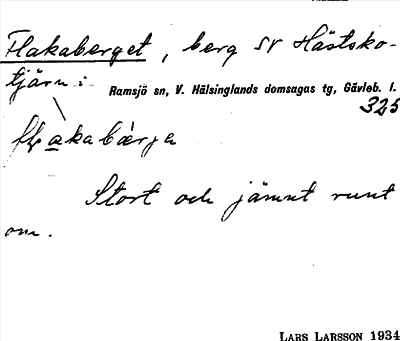 Flakaberget, berg SV Hästsko-
tjärn i Ramsjö sn, V. Hälsinglands domsagas tg, Gävleb. l.
325
Stort och jämnt runt
om.
LARS LARSSON 1934